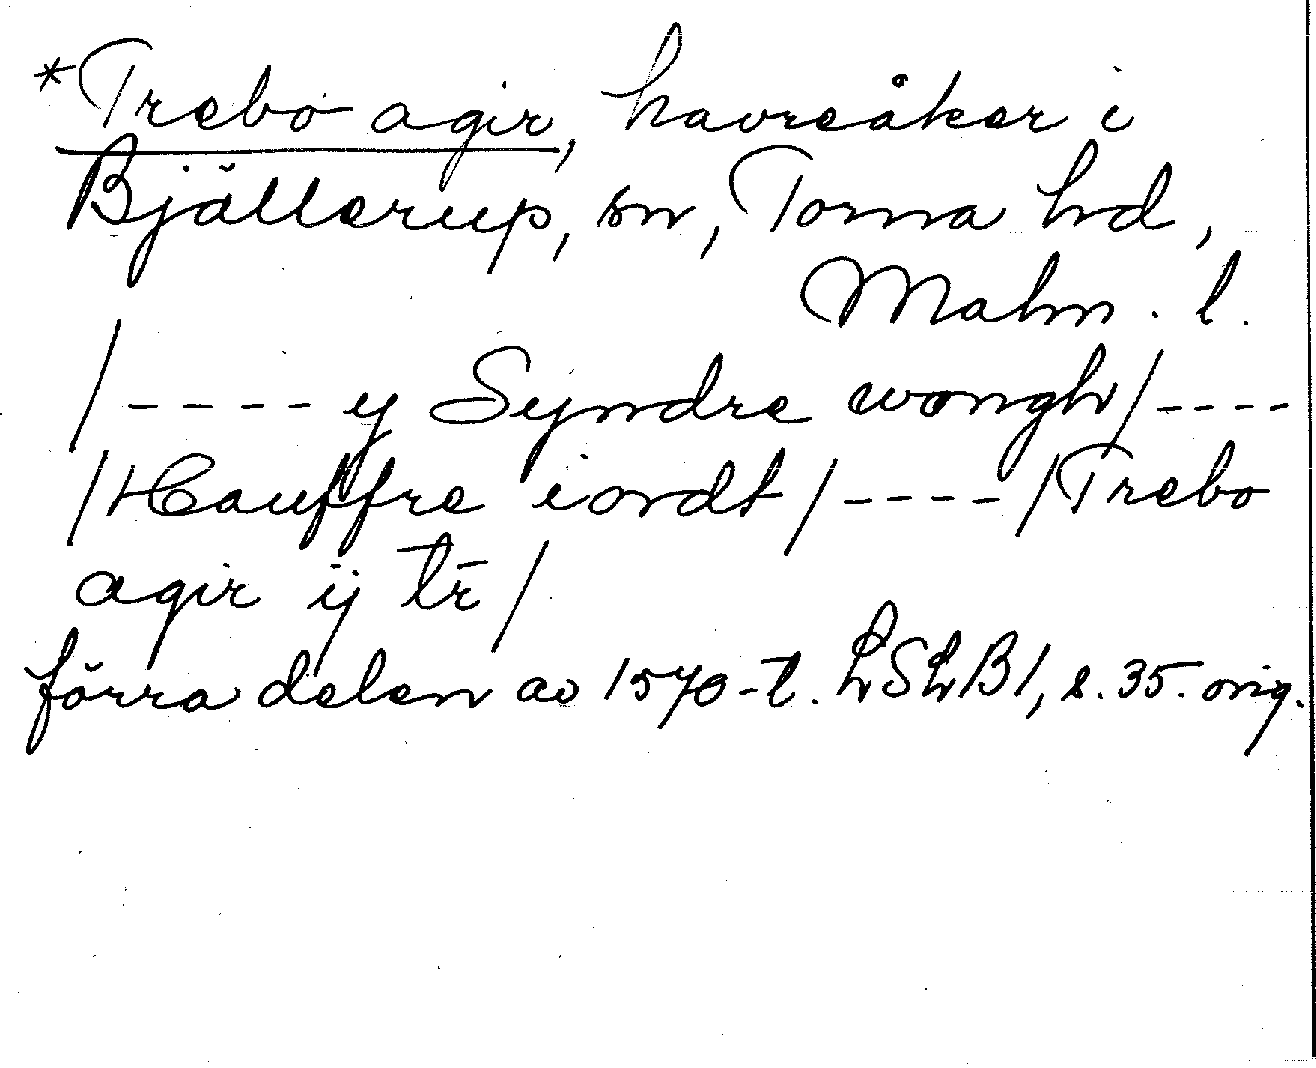 *Trebo agir, havreåker i
Bjällerup, sn, Torna hd,
Malm. l.
/---- y Syndre wongh/----
/Hauffre iordt/----/Trebo
agir ij tr̄/
förra delen av 1570-t. LSLB1, s. 35. orig.